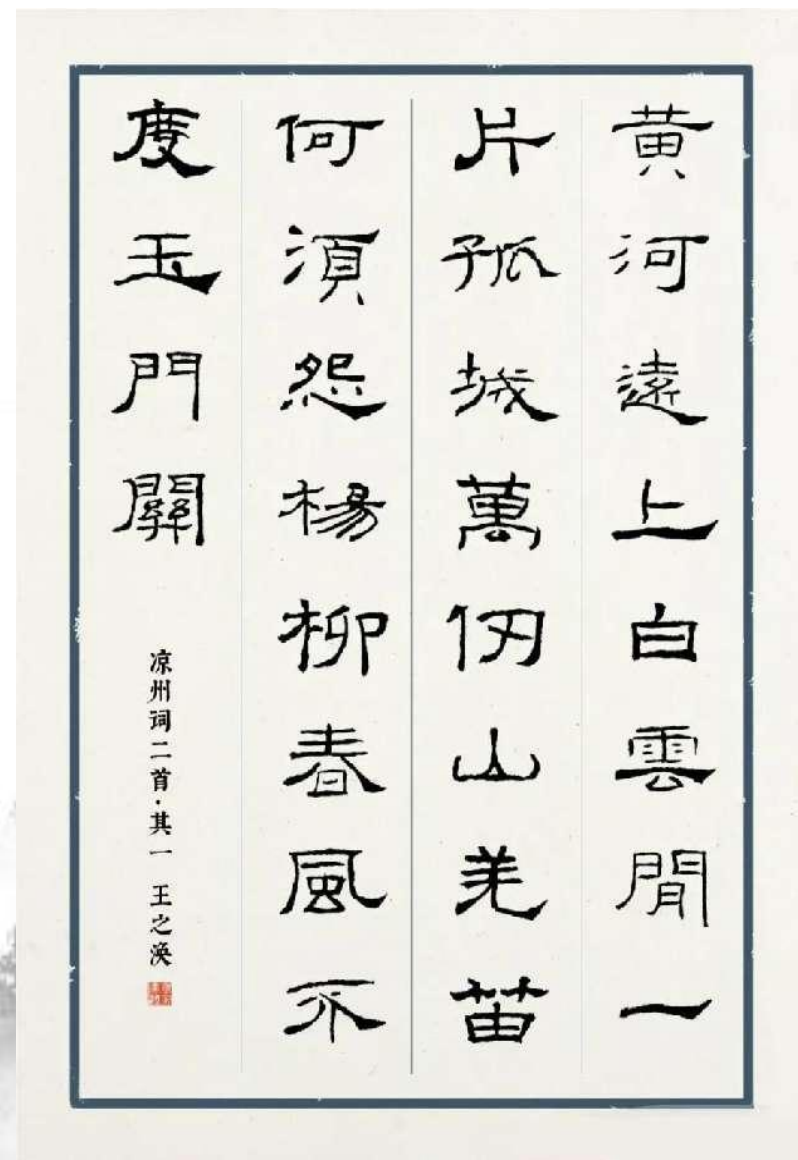 黄河遠上白雲閒一
片孤城萬仞山羌笛
何須怨楊柳春風不
度玉門關
凉州词二首·其一 王之涣